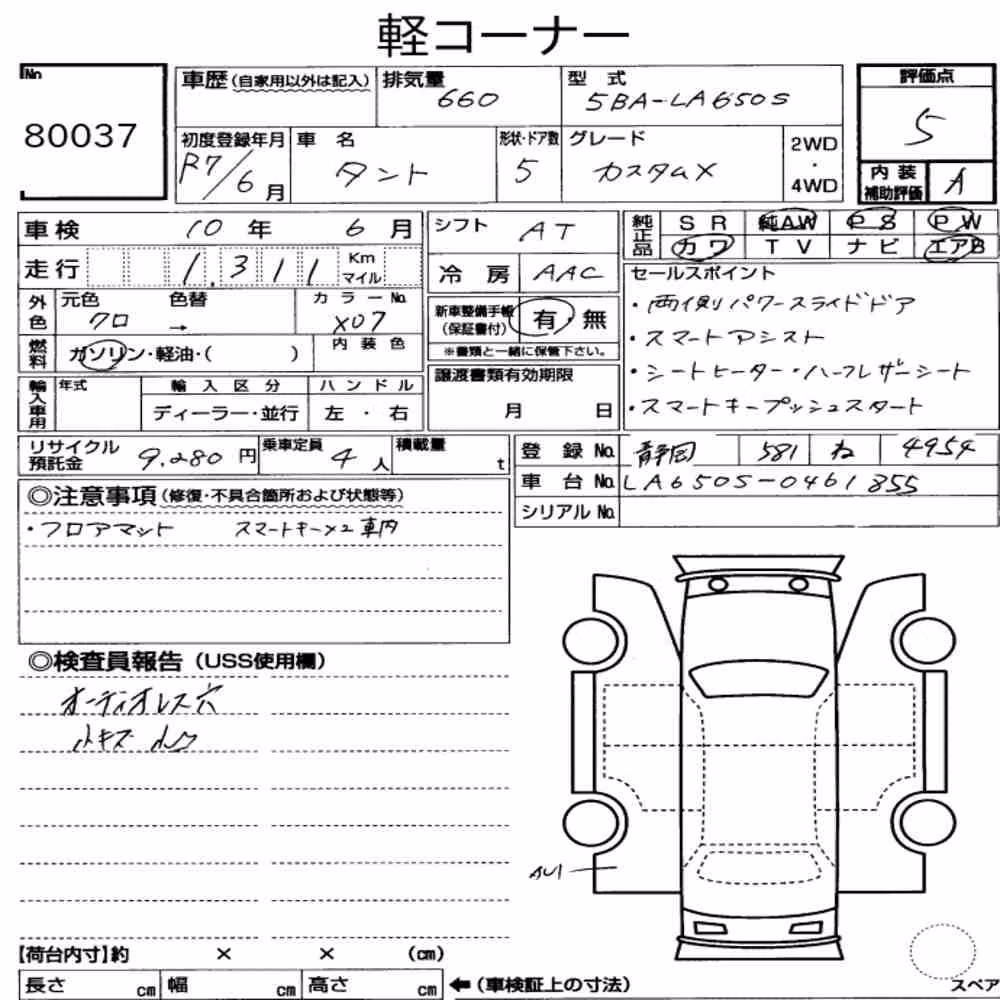 軽コーナー
No.
80037
車歴(自家用以外は記入) 排気量 660 型 式 5BA-LA650S
初度登録年月 R7/6月 車 名 タント 形状・ドア数 5 グレード カスタムX 2WD・4WD
評価点
5
内 装
補助評価 A
車検 10年 6月
走行 1,311 Km マイル
外色 元色 クロ 色替 → カラーNo. X07
燃料 ガソリン・軽油・( ) 内装色
輸入車用 年式 輸入区分 ハンドル
ディーラー・並行 左・右
リサイクル預託金 9,280円 乗車定員 4人 積載量 t
シフト AT
冷 房 AAC
新車整備手帳
(保証書付) 有 無
※書類と一緒に保管下さい。
譲渡書類有効期限
月 日
純正品 SR 純AW PS PW
カワ TV ナビ エアB
セールスポイント
・両側パワースライドドア
・スマートアシスト
・シートヒーター・ハーフレザーシート
・スマートキープッシュスタート
登 録 No. 静岡 581 ね 4954
車 台 No. LA650S-0461855
シリアル No.
◎注意事項(修復・不具合箇所および状態等)
・フロアマット スマートキー×2 車内
◎検査員報告(USS使用欄)
オーディオレス穴
小キズ 小凹
AU1
【荷台内寸】約 × × (cm)
長さ cm 幅 cm 高さ cm ←(車検証上の寸法)
スペア